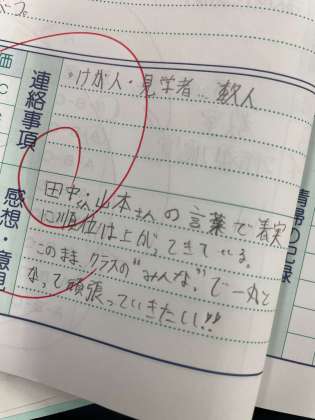 連絡事項
・けが人・見学者… 数人
感想・意見
田中くん・山本さんの言葉で着実
に順位は上がってきている。
このまま、クラスの"みんな"で一丸と
なって頑張っていきたい!!
清掃の記録